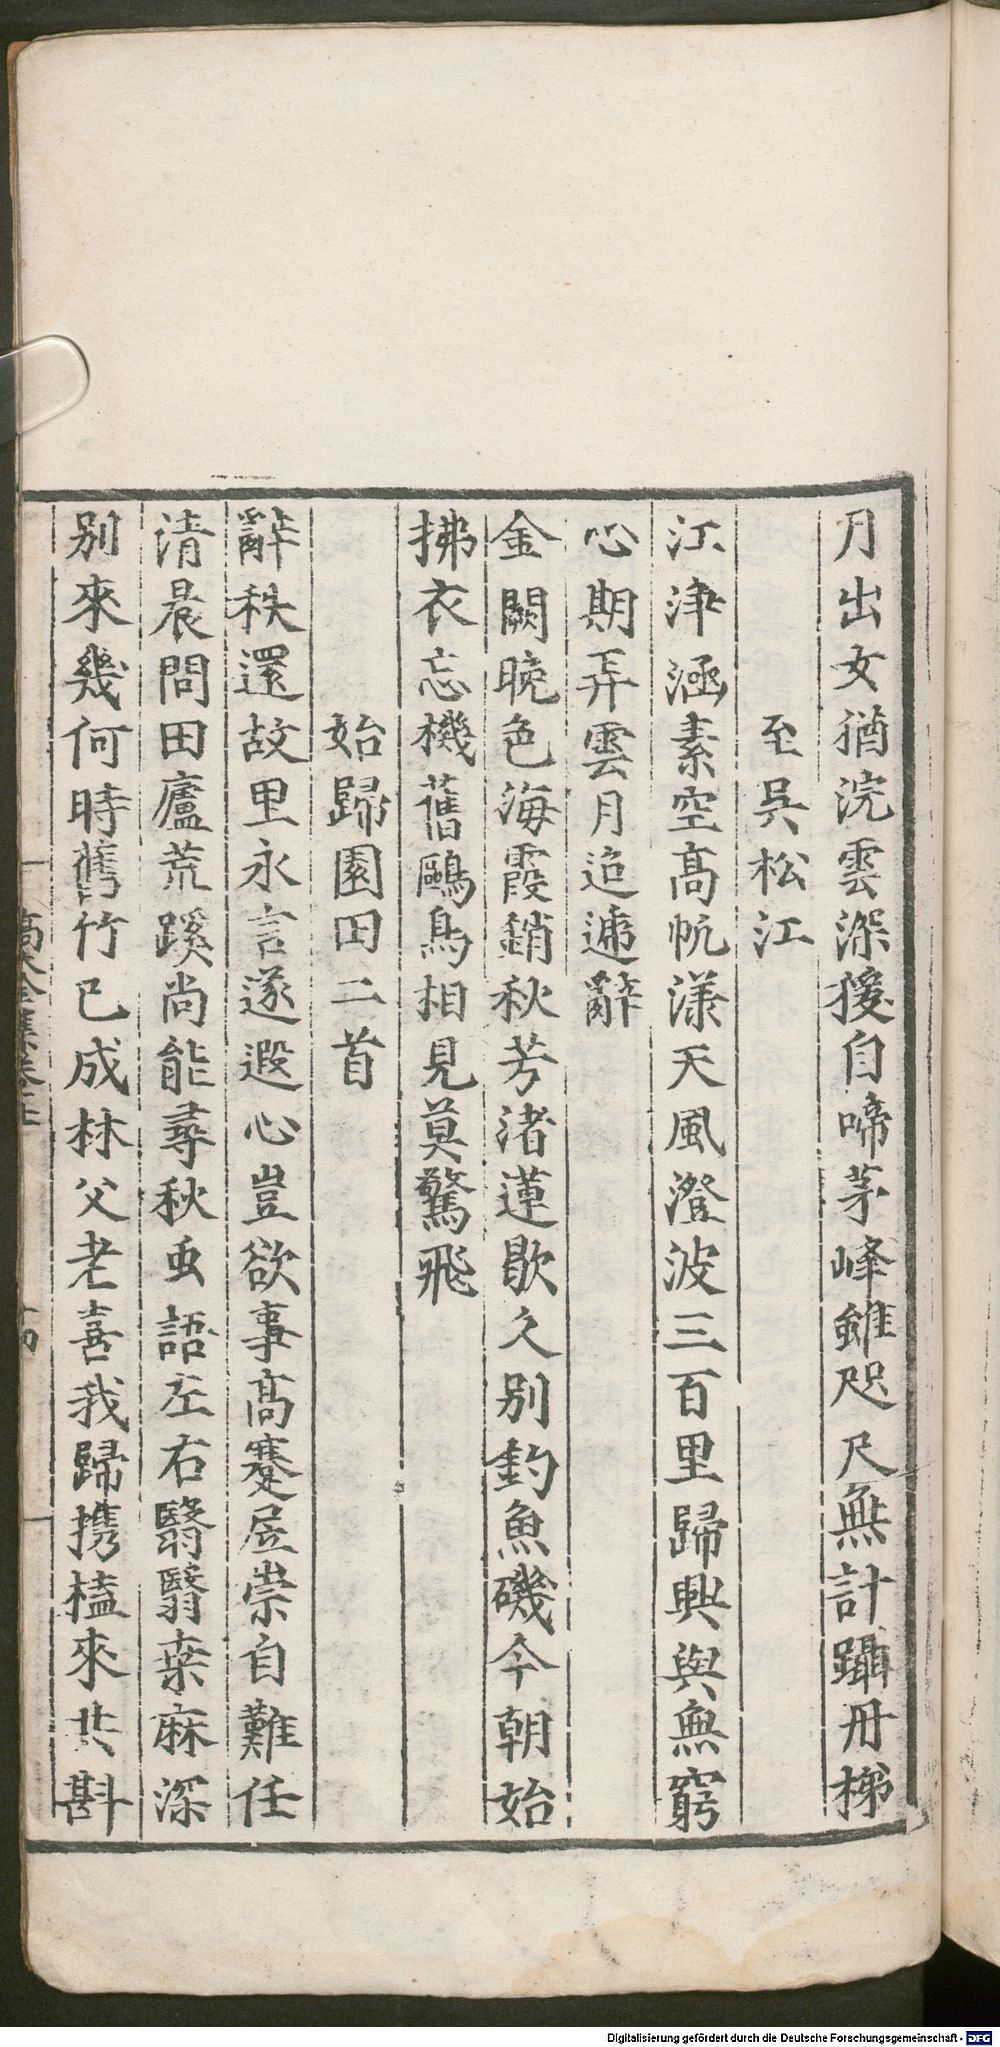 月出女猶浣雲深猨自啼茅峰雖咫尺無計躡丹梯
至吳松江
江津涵素空高帆漾天風澄波三百里歸興與無窮
心期弄雲月迢遞辭
金闕晚色海霞銷秋芳渚蓮歇久別釣魚磯今朝始
拂衣忘機舊鷗鳥相見莫驚飛
始歸園田二首
辭秩還故里永言遂遐心豈欲事高蹇居崇自難任
清晨問田廬荒蹊尚能尋秋虫語左右翳翳桑麻深
別來幾何時舊竹已成林父老喜我歸携榼來共斟
Digitalisierung gefördert durch die Deutsche Forschungsgemeinschaft - DFG